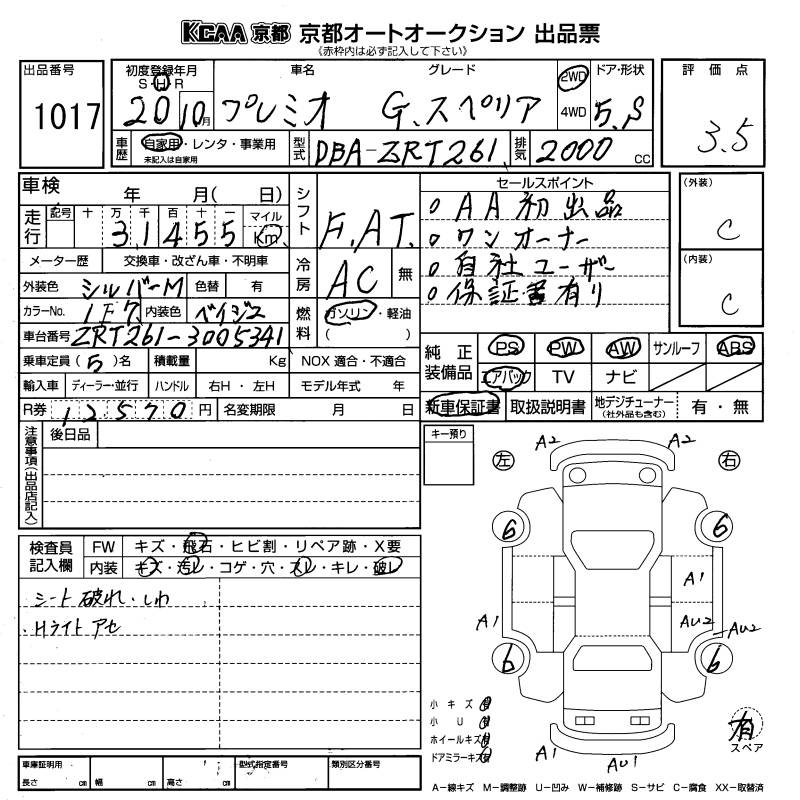 KCAA 京都 京都オートオークション 出品票
《赤枠内は必ず記入して下さい》
出品番号 1017
初度登録年月 S・H・R 20 10月
車名 プレミオ
グレード G.スペリア
2WD 4WD
ドア・形状 5.S
評価点 3.5
車歴 自家用・レンタ・事業用 未記入は自家用
型式 DBA-ZRT261
排気 2000 CC
車検 年 月( 日)
走行 記号 十 万 千 百 十 一 マイル Km
31455
シフト F.AT.
メーター歴 交換車・改ざん車・不明車
冷房 AC 無
外装色 シルバーM 色替 有
カラーNo. 1F7 内装色 ベイジュ
燃料 ガソリン・軽油 ( )
車台番号 ZRT261-3005341
乗車定員 (5)名 積載量 Kg NOX 適合・不適合
輸入車 ディーラー・並行 ハンドル 右H・左H モデル年式 年
R券 12570円 名変期限 月 日
セールスポイント
。AA初出品
。ワンオーナー
。自社ユーザー
。保証書有り
(外装) C
(内装) C
純正装備品 PS PW AW サンルーフ ABS
エアバック TV ナビ
新車保証書 取扱説明書 地デジチューナー (社外品も含む) 有・無
注意事項(出品店記入)
後日品
キー預り
左 右
A2 A2
6 6
A1
A1 AU2 AU2
6 6
A1 AU1
検査員記入欄 FW キズ・飛石・ヒビ割・リペア跡・X要
内装 キズ・汚レ・コゲ・穴・スレ・キレ・破レ
・シート破れ・しわ
・Hライトアセ
小キズ 有
小U 有
ホイールキズ 有
ドアミラーキズ 有
有 スペア
車庫証明用 長さ cm 幅 cm 高さ cm 型式指定番号 類別区分番号
A-線キズ M-調整跡 U-凹み W-補修跡 S-サビ C-腐食 XX-取替済